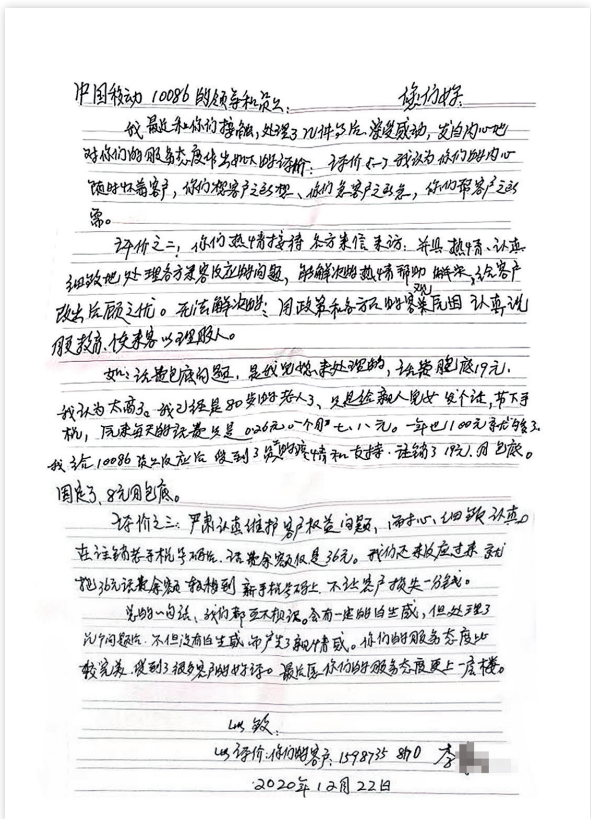 中国移动10086的领导和员工： 您们好：
我最近和你们接触，处理了几件事后，深受感动，发自内心地
对你们的服务态度作出如下的评价：评价(一)我认为你们的内心
随时怀着客户，你们想客户之所想、你们急客户之所急，你们帮客户之所
需。
评价之二：你们热情接待各方来信来访。并且热情、认真
细致地处理各方来客反应的问题，能解决的热情帮助解决，给客户
改出后顾之忧。无法解决的：用政策和各方面的客观原因认真说
服教育，使来客以理服人。
如：话费包底问题，是我儿媳来处理的，话费包底19元，
我认为太高了。我已经是80岁的老人了、只是给亲人儿女儿个话，带下手
机，原来每天的话费只是0.26元。一个月七、八元。一年也100元就够了。
我给10086员工反应后得到了员工的热情和支持。注销了19元月包底。
固定了8元月包底。
评价之三：严肃认真维护客户权益问题，而耐心、细致认真。
在注销老手机号码后，话费余额仅是36元。我们还未反应过来就
把36元话费余额转移到新手机号码上，不让客户损失一分钱。
总的一句话，我们都互不相识。会有一定的陌生感，但处理了
几个问题后，不但没有陌生感而产生了亲情感。你们的服务态度比
较完美，得到了很多客户的好评。最后愿你们的服务态度更上一层楼。
此致：
此评价：你们的客户：1598735 8170 李
2020年12月22日